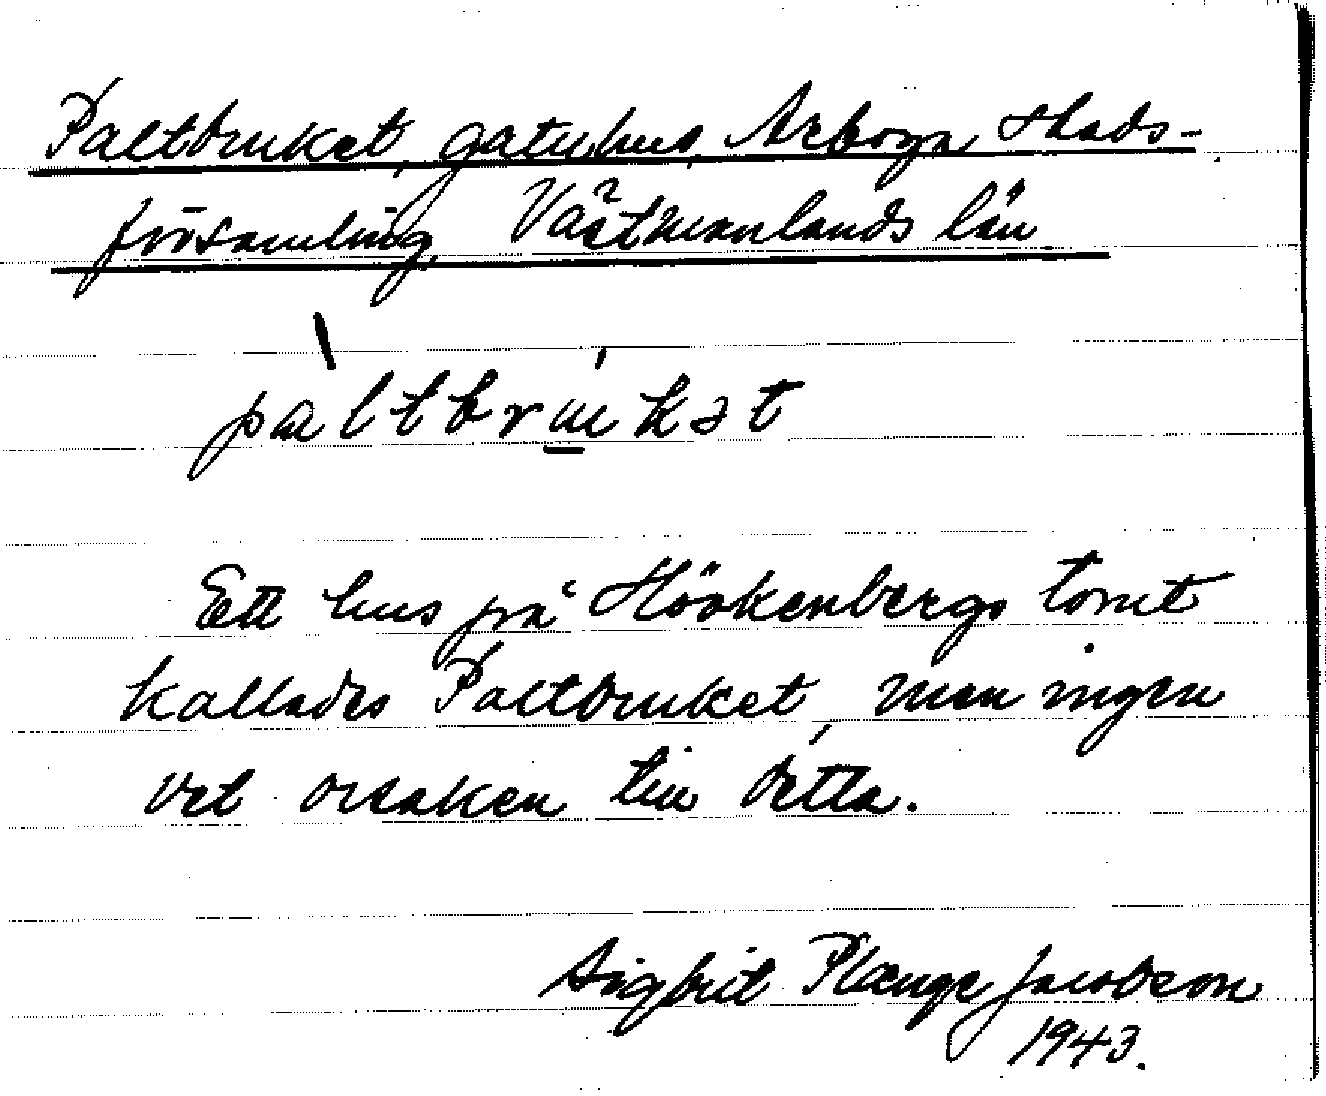 Paltbruket, gatuhus, Arboga stads-
församling, Västmanlands län.
pàltbrúkət
Ett hus på Höökenbergs tomt
kallades Paltbruket, men ingen
vet orsaken till detta.
Sigbrit Plænge Jacobson
1943.